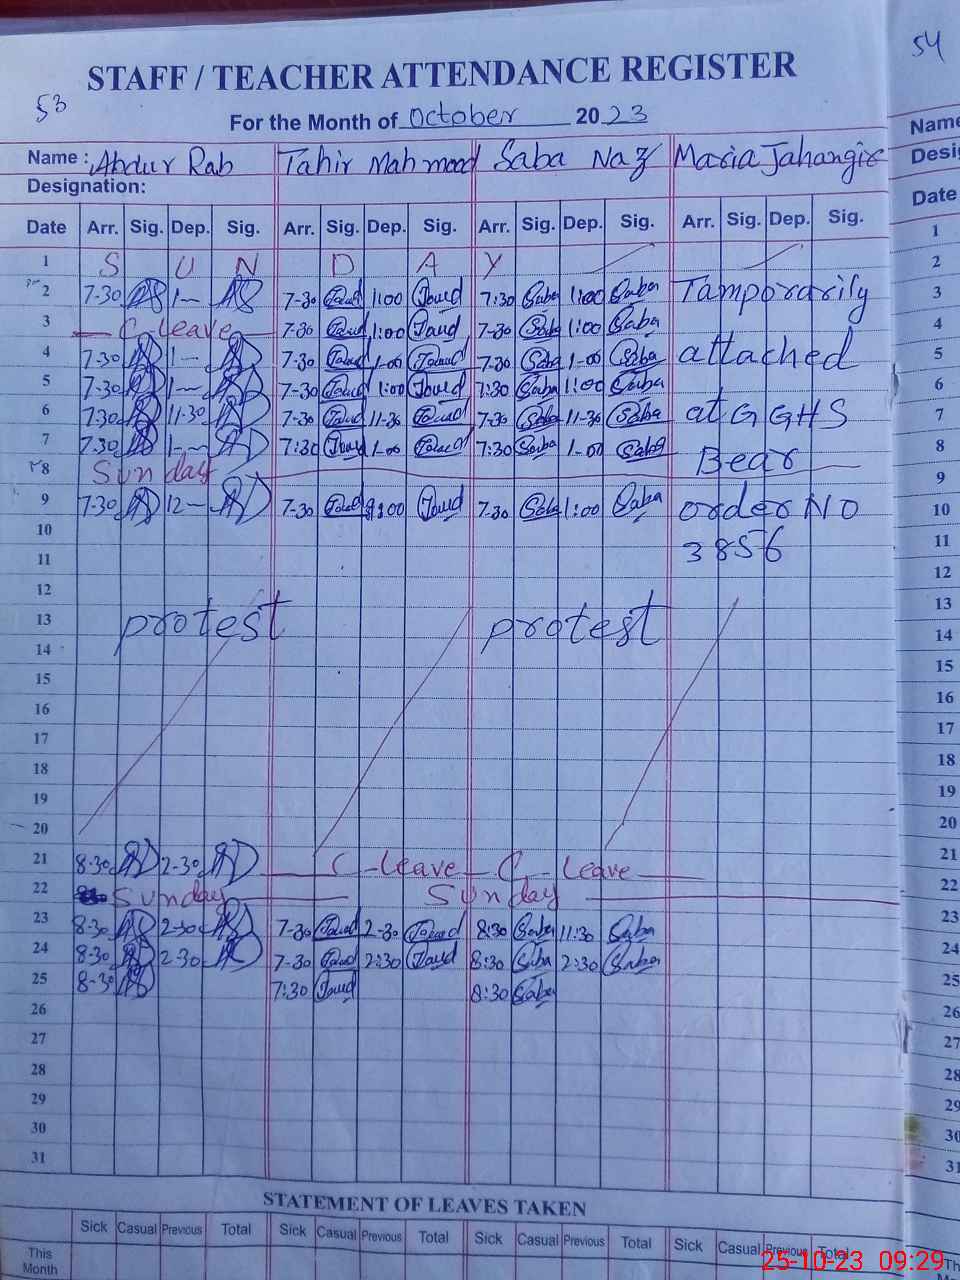 54
STAFF / TEACHER ATTENDANCE REGISTER
53
For the Month of October 20 23
Name : Abdur Rab Tahir Mahmood Saba Naz Maria Jahangir
Name
Designation:
Desig
Date Arr. Sig. Dep. Sig. Arr. Sig. Dep. Sig. Arr. Sig. Dep. Sig. Arr. Sig. Dep. Sig.
Date
1 S U N D A Y
2 7-30 1— 7-30 1:00 7:30 Saba 1:00 Saba Tamporarily
3 — C-leave — 7-30 1:00 7-30 Saba 1:00 Saba
4 7-30 1— 7-30 1-00 7-30 Saba 1-00 Saba attached
5 7-30 1— 7-30 1:00 7:30 Saba 1:00 Saba
6 7-30 11-30 7-30 11-30 7-30 Saba 11-30 Saba at GGHS
7 7-30 1— 7:30 1-00 7:30 Saba 1-00 Saba
8 Sunday Bear
9 7-30 12— 7-30 7-30 Saba 1:00 Saba order NO
10
11 3856
12
13 protest protest
14
15
16
17
18
19
20
21 8-30 2-30 C-leave C-leave
22 Sunday Sunday
23 8-30 2-30 7-30 2-30 8:30 Saba 11:30 Saba
24 8-30 2-30 7-30 2:30 8:30 Saba 2:30 Saba
25 8-30 7:30 8:30 Saba
26
27
28
29
30
31
1
2
3
4
5
6
7
8
9
10
11
12
13
14
15
16
17
18
19
20
21
22
23
24
25
26
27
28
29
30
31
STATEMENT OF LEAVES TAKEN
Sick Casual Previous Total Sick Casual Previous Total Sick Casual Previous Total Sick Casual Previous Total
This
Month
Th
25-10-23 09:29